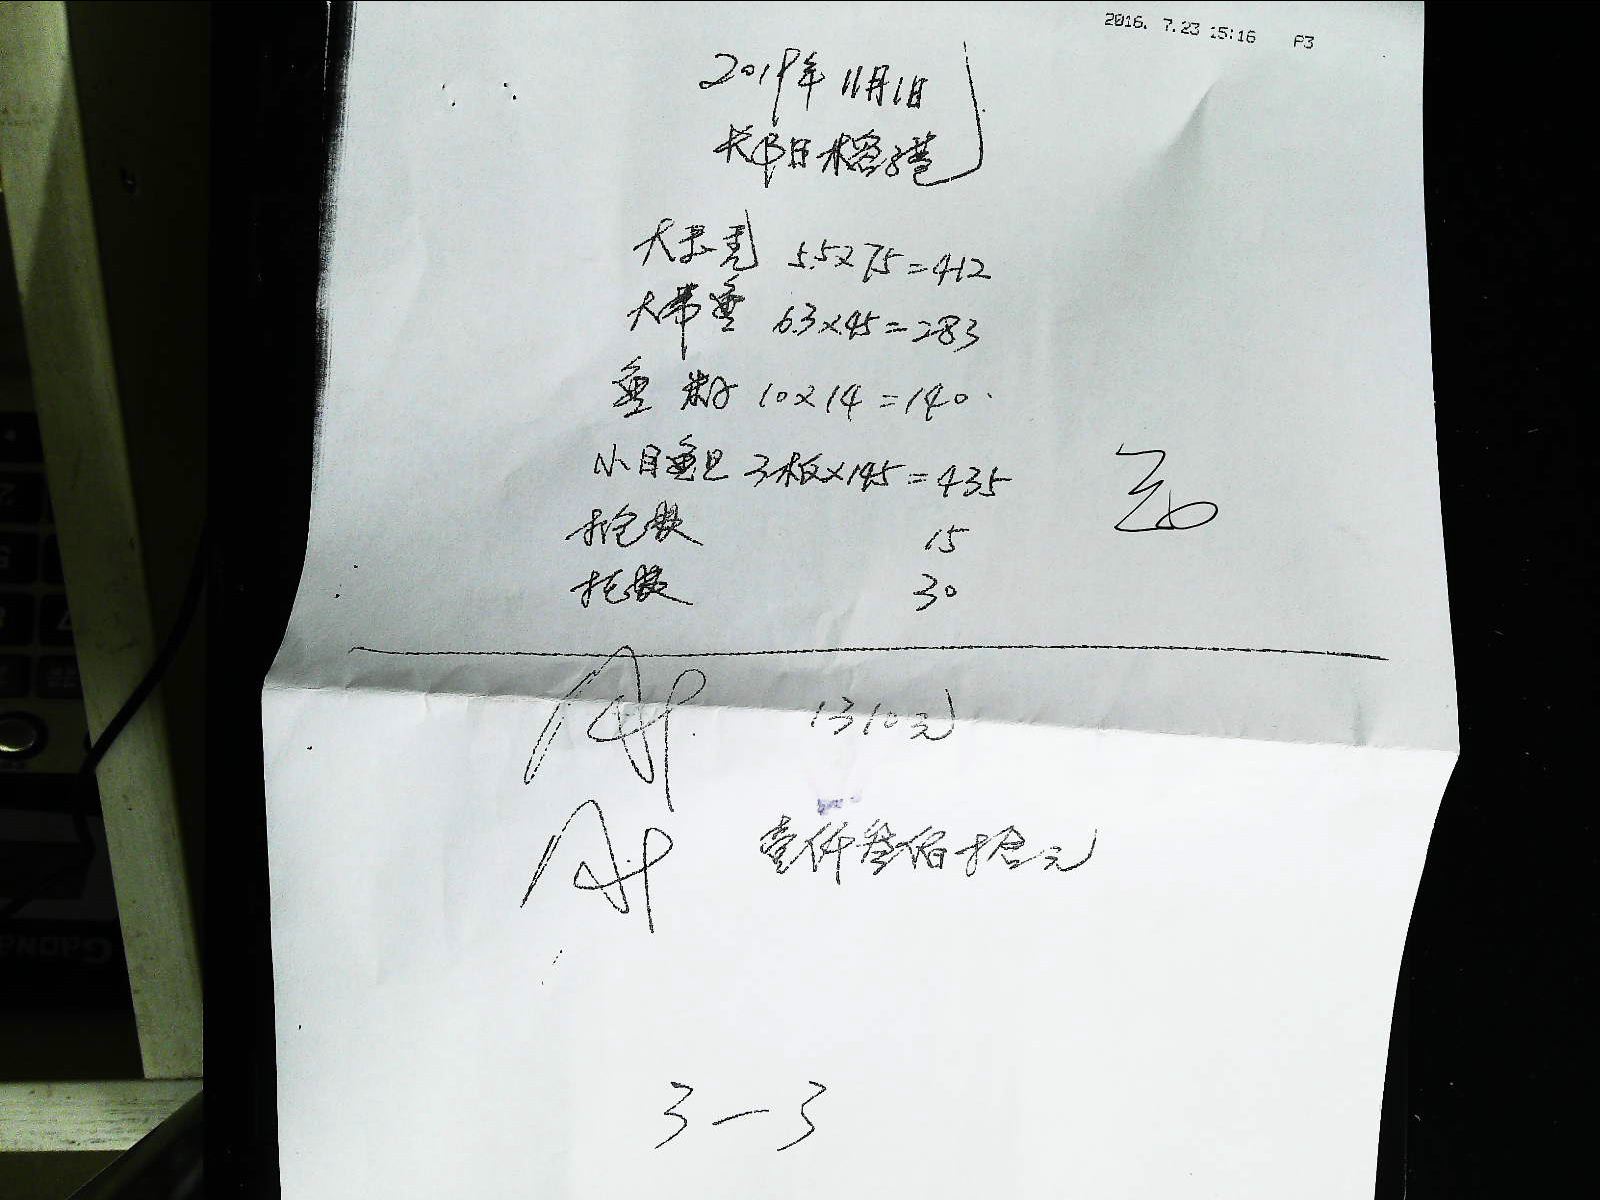 2016. 7.23 15:16 P3
2019年11月1日
大 5.5×75=412
大带鱼 6.3×45=283
鱼粉 10×14=140
小目鱼旦 3板×145=435
打包费 15
托费 30
1310元
壹仟叁佰拾元
3-3